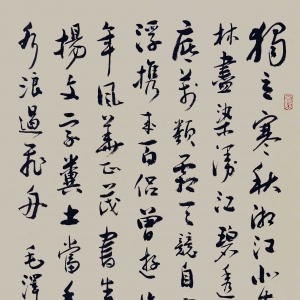 獨立寒秋湘江北
林盡染漫江碧透
底萬類霜天競自
浮攜來百侶曾遊
年風華正茂書生
揚文字糞土當
水浪遏飛舟 毛澤